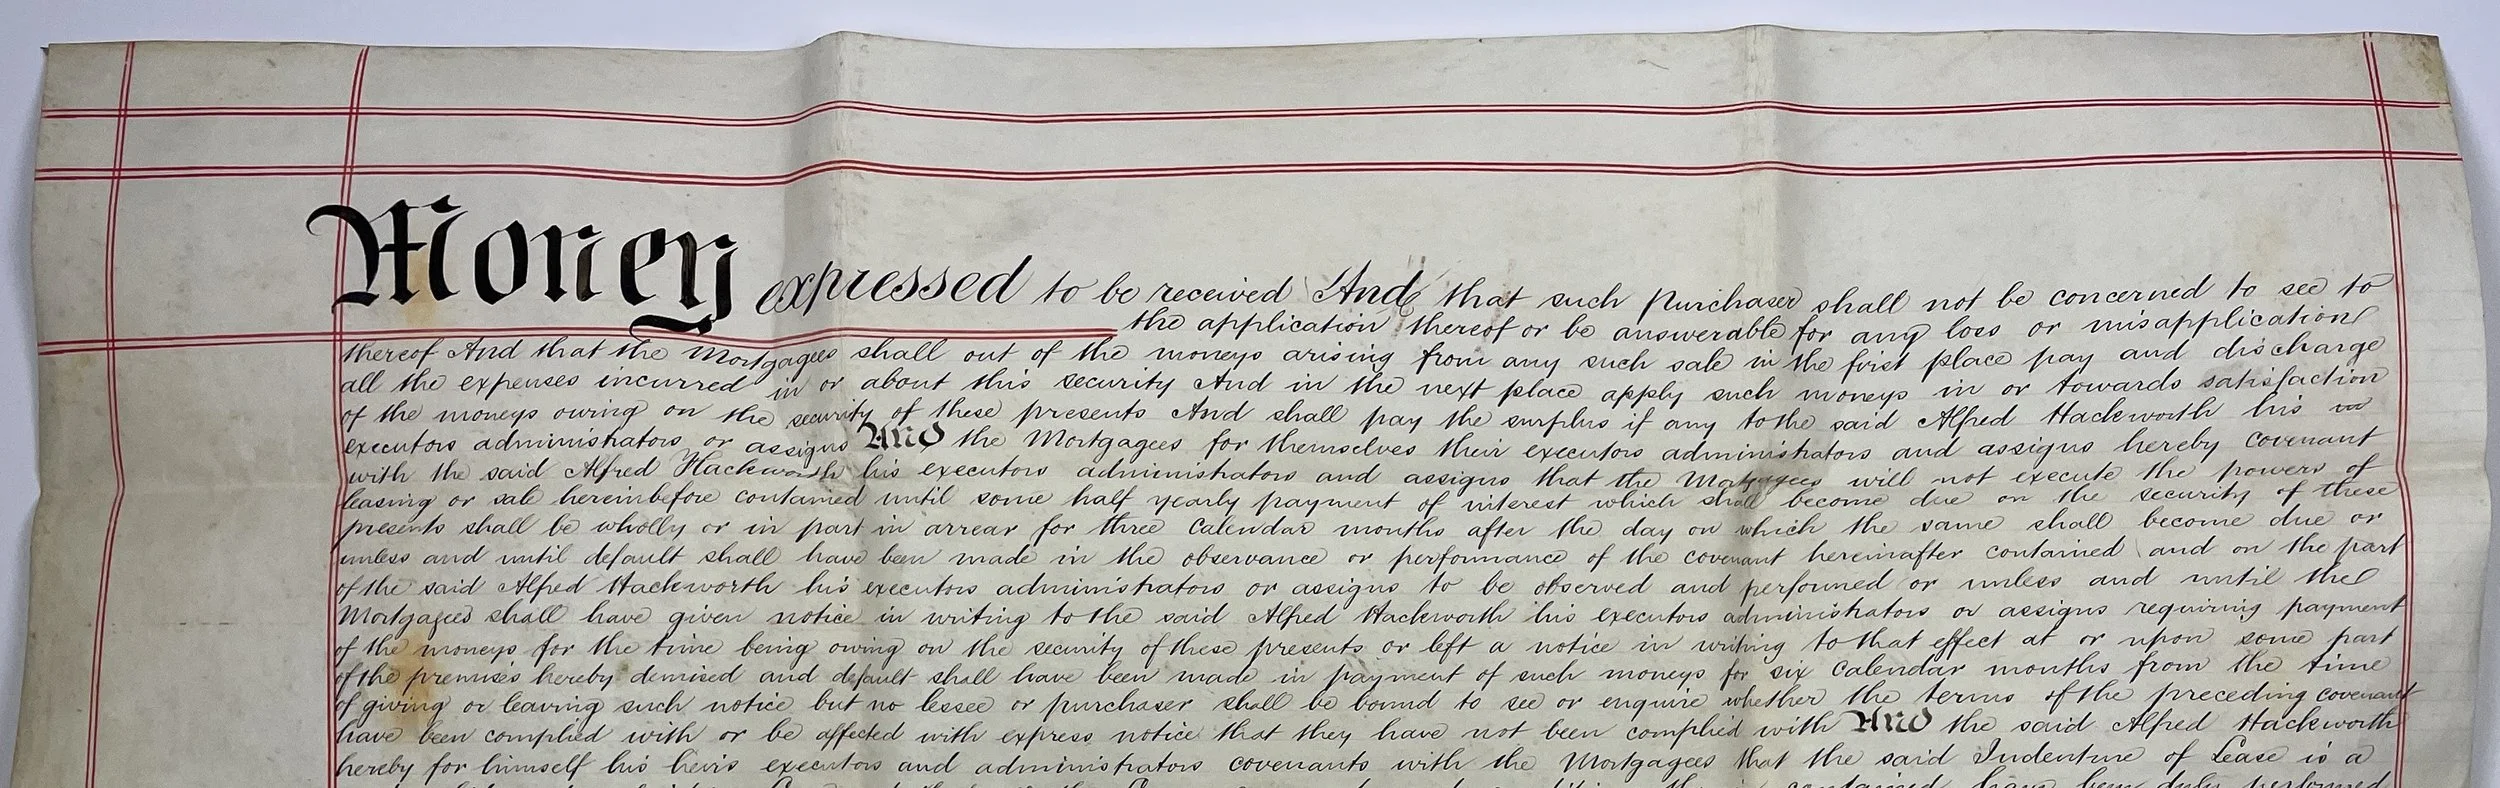 Money expressed to be received And that such purchaser shall not be concerned to see to
the application thereof or be answerable for any loss or misapplication
thereof And that the Mortgagees shall out of the moneys arising from any such sale in the first place pay and discharge
all the expenses incurred in or about this security And in the next place apply such moneys in or towards satisfaction
of the moneys owing on the security of these presents And shall pay the surplus if any to the said Alfred Hackworth his
executors administrators or assigns And the Mortgagees for themselves their executors administrators and assigns hereby covenant
with the said Alfred Hackworth his executors administrators and assigns that the Mortgagees will not execute the powers of
leasing or sale hereinbefore contained until some half yearly payment of interest which shall become due on the security of these
presents shall be wholly or in part in arrear for three calendar months after the day on which the same shall become due or
unless and until default shall have been made in the observance or performance of the covenant hereinafter contained and on the part
of the said Alfred Hackworth his executors administrators or assigns to be observed and performed or unless and until the
Mortgagees shall have given notice in writing to the said Alfred Hackworth his executors administrators or assigns requiring payment
of the moneys for the time being owing on the security of these presents or left a notice in writing to that effect at or upon some part
of the premises hereby demised and default shall have been made in payment of such moneys for six calendar months from the time
of giving or leaving such notice but no lessee or purchaser shall be bound to see or enquire whether the terms of the preceding covenant
have been complied with or be affected with express notice that they have not been complied with And the said Alfred Hackworth
hereby for himself his heirs executors and administrators covenants with the Mortgagees that the said Indenture of Lease is a
contained have been duly performed